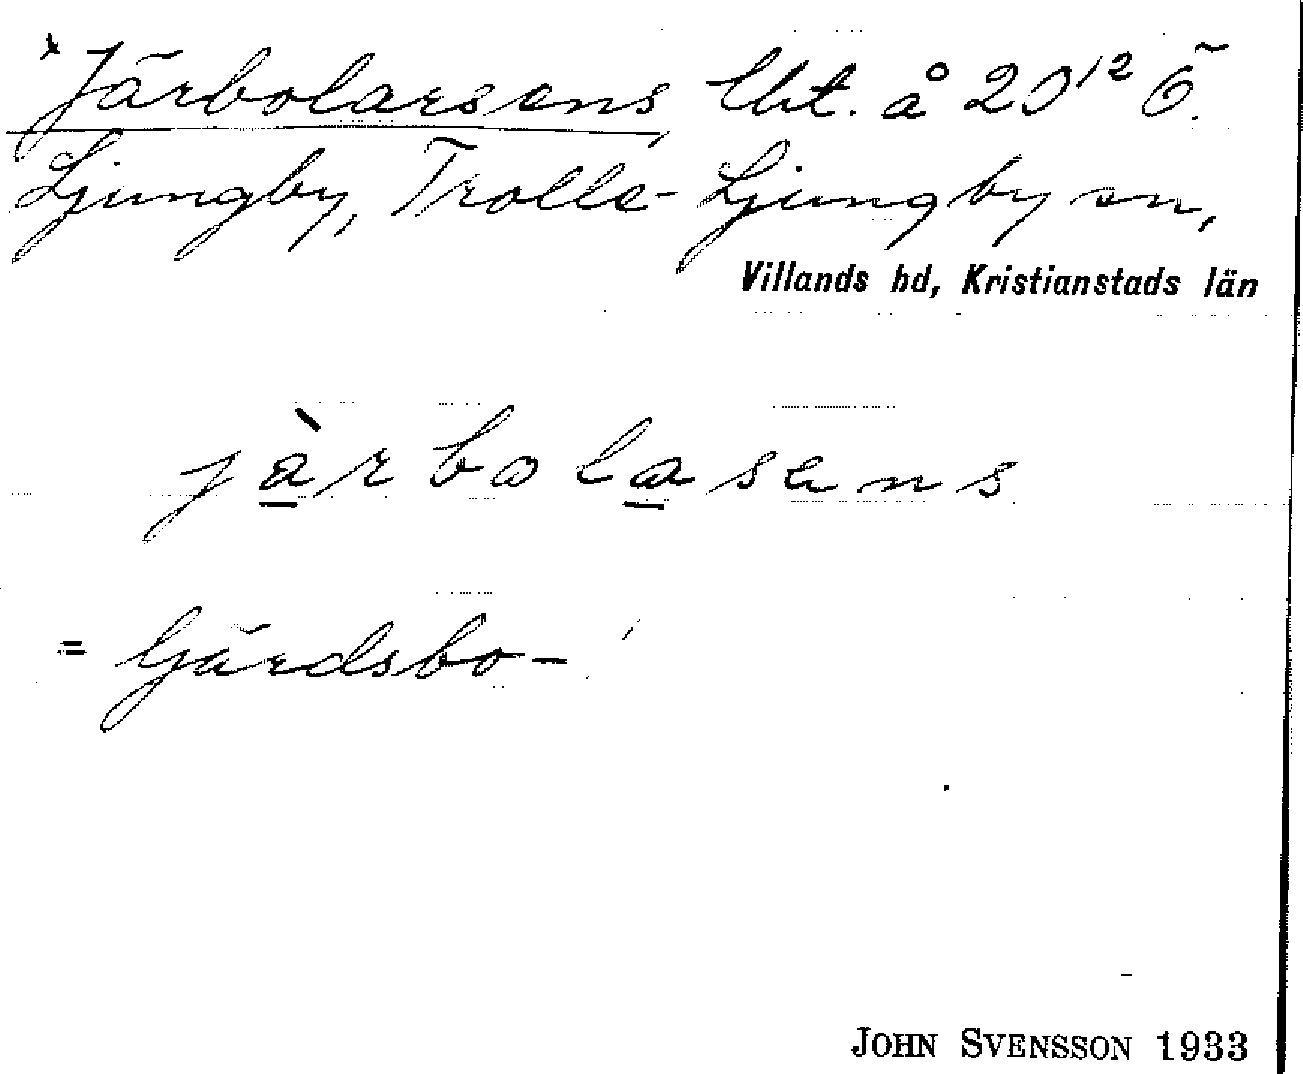 *Järbolarsens, lht. å 20¹² Ö.
Ljungby, Trolle-Ljungby sn,
Villands hd, Kristianstads län
jàrbolasens
= Gärdsbo-
JOHN SVENSSON 1933